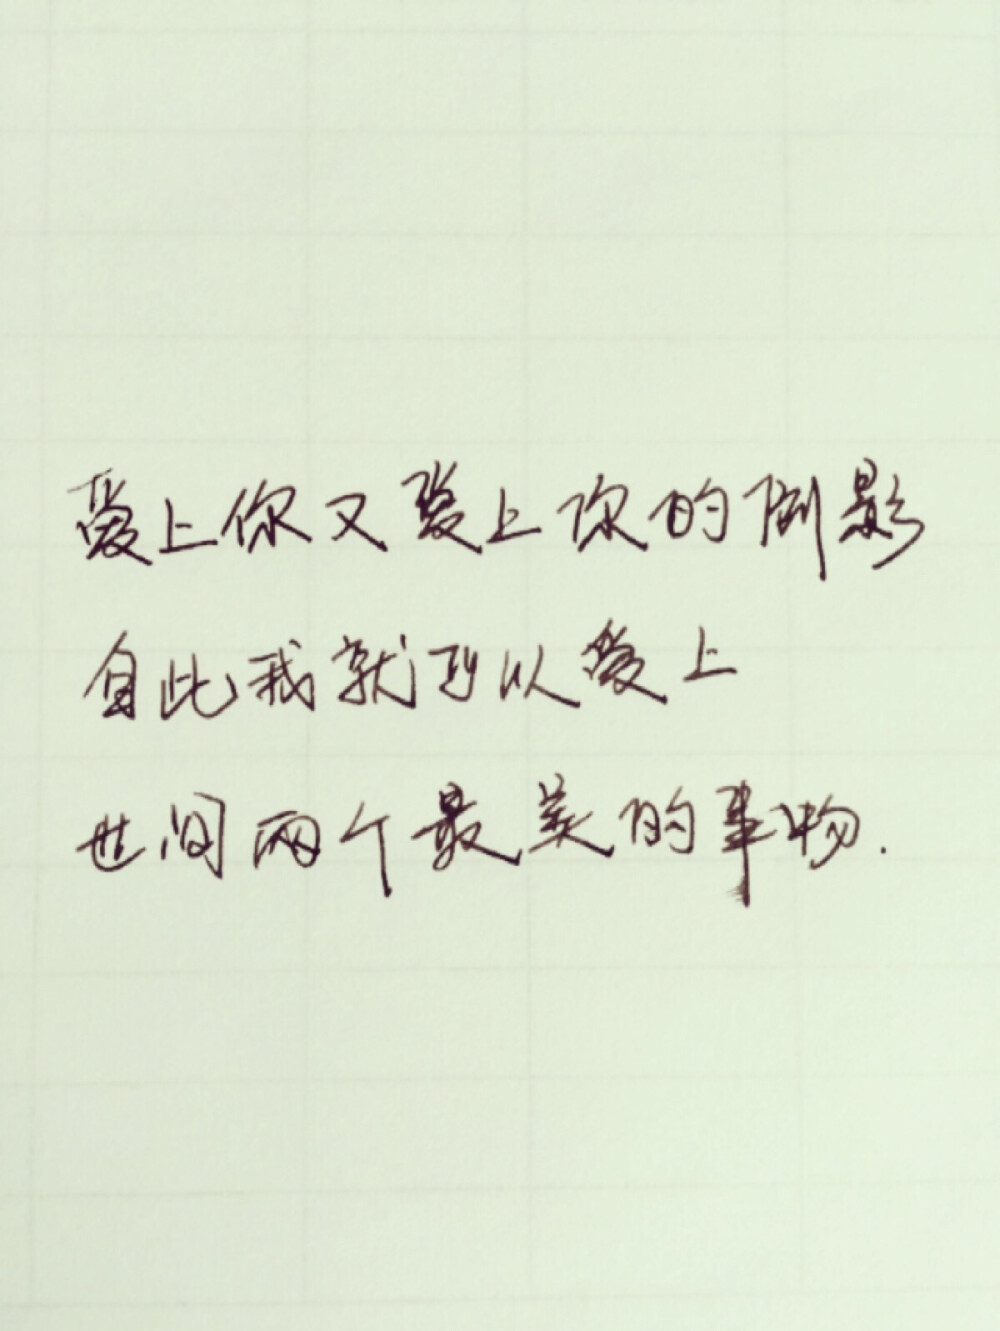 爱上你又爱上你的倒影
自此我就可以爱上
世间两个最美的事物.